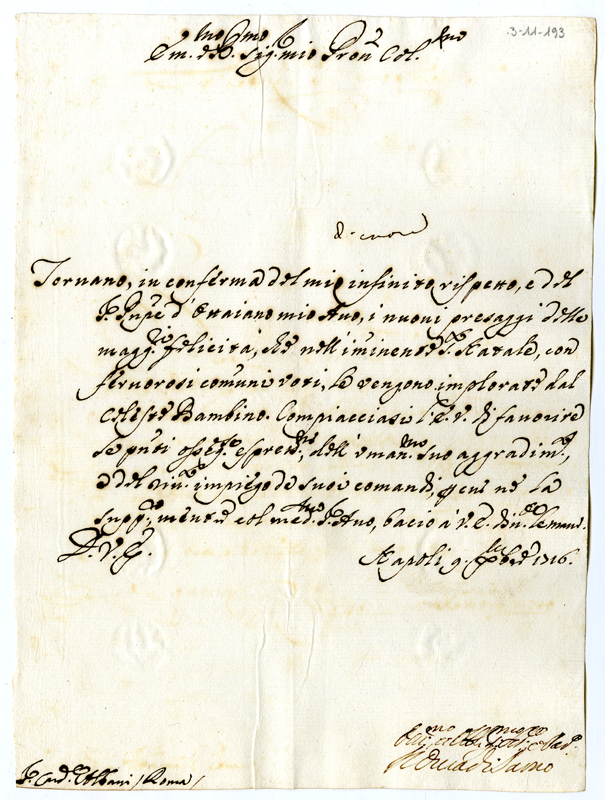 3-11-193
Em.mo e R.mo Sig.r mio P.ron Col.mo
Tornano, in conferma del mio infinito rispetto, e del
S. Pn̄pe d'Ottaiano mio Avo, i nuovi presaggi delle
magg.ri felicità, che nell'iminente S.o Natale, con
fervorosi comuni voti, le vengono implorate dal
Celeste Bambino. Compiacciasi l'E. V. di favorire
le pn̄ti osseq.e espres.ni, dell'uman.mo suo aggradim.to,
e del riv.o impiego de suoi comandi, che ne la
supp.co, mentre col med.mo S. Avo, bacio à V. E. le mani.
D. V. E.
Napoli 9. Xbre 1716.
Il Duca di Sarno
S. Card.e Albani / Roma /